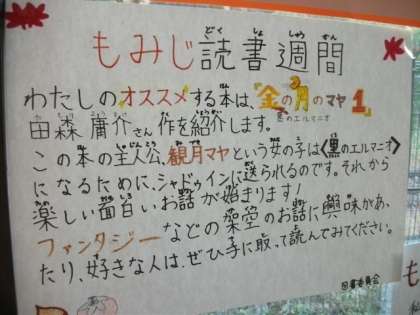 もみじ読書週間
わたしのオススメする本は、「金の月のマヤ1
黒のエルマニオ
田森庸介さん作を紹介します。
この本の主人公、観月マヤという女の子は〈黒のエルマニオ〉
になるために、シャドゥインに送られるのです。それから
楽しい面白いお話が始まります!
ファンタジーなどの架空のお話に興味があっ
たり、好きな人は、ぜひ手に取って読んでみてください。
図書委員会
も